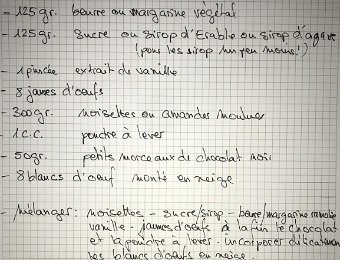 - 125 gr. beurre ou margarine végétal
- 125 gr. sucre ou sirop d'Erable ou sirop d'agave
(pour les sirop un peu moins!)
- 1 pincée extrait de vanille
- 8 jaunes d'oeufs
- 300gr. noisettes ou amandes moulues
- 1 c.c. poudre à lever
- 50gr. petits morceaux de chocolat noir
- 8 blancs d'oeuf monté en neige
- Mélanger: noisettes - sucre/sirop - beurre/margarine ramollie
vanille - jaunes d'oeufs à la fin le chocolat
et la poudre à lever. Incorporer délicatement
les blancs d'oeufs en neige.